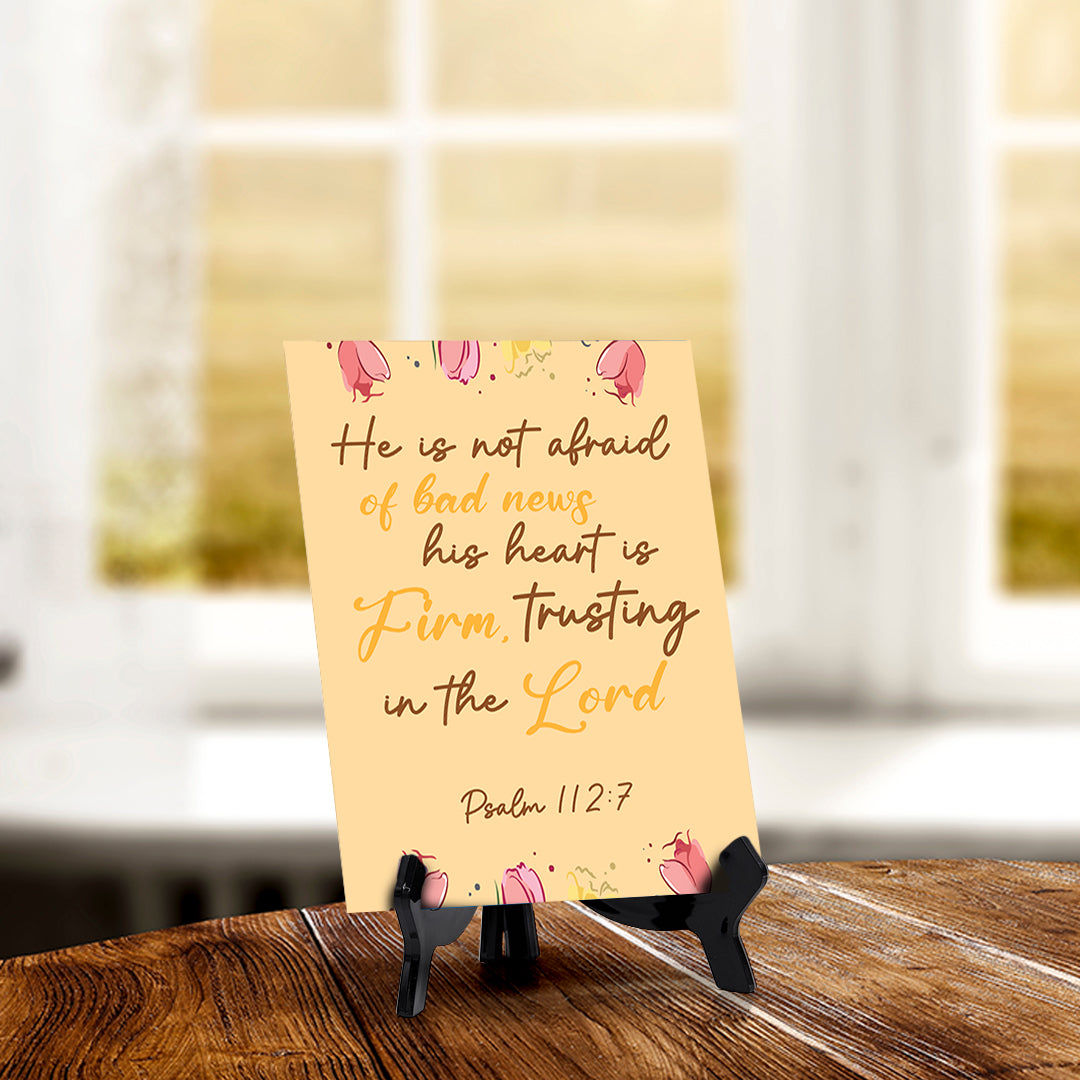 He is not afraid
of bad news
his heart is
Firm, trusting
in the Lord
Psalm 112:7